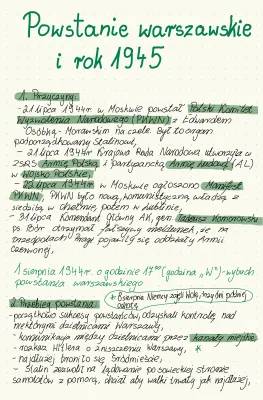 Powstanie warszawskie
i rok 1945
1. Przyczyny:
- 21 lipca 1944r. w Moskwie powstał Polski Komitet
Wyzwolenia Narodowego (PKWN) z Edwardem
Osóbką-Morawskim na czele. Był to organ
podporządkowany Stalinowi,
- 21 lipca 1944r Krajowa Rada Narodowa utworzyła w
ZSRS Armię Polską i partyzancką Armię Ludową (AL)
w Wojsko Polskie,
- 22 lipca 1944r w Moskwie ogłoszono Manifest
PKWN. PKWN było nową, komunistyczną władzą z
siedzibą w chełmie, potem w Lublinie,
- 31 lipca Komendant Główny AK, gen. Tadeusz Komorowski
ps. Bór otrzymał fałszywy meldunek, że na
przedpolach Pragi pojawiły się oddziały Armii
czerwonej,
1 sierpnia 1944r. o godzinie 17⁰⁰ (godzina „W") - wybuch
powstania warszawskiego
2. Przebieg powstania:
* 8 sierpnia Niemcy zajęli Wolę, trzy dni później
ochotę
- początkowo sukcesy powstańców, odzyskali kontrolę nad
niektórymi dzielnicami Warszawy,
- komunikacja między dzielnicami przez kanały miejskie,
- rozkaz Hitlera o zniszczeniu Warszawy, *
- najdłużej broniło się Śródmieście,
- Stalin zezwolił na lądowanie po sowieckiej stronie
samolotów z pomocą, chciał aby walki trwały jak najdłużej,